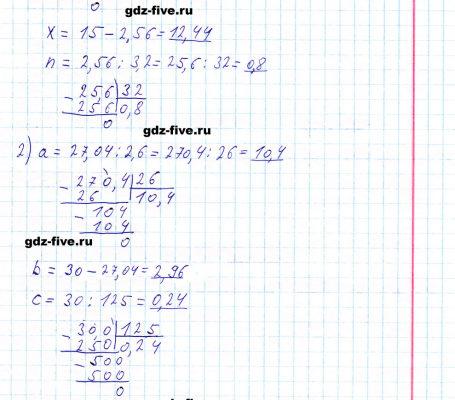 0
gdz-five.ru
x = 15 - 2,56 = 12,44
n = 2,56 : 3,2 = 25,6 : 32 = 0,8
- 25,6 | 32
25 6 | 0,8
0
gdz-five.ru
2) a = 27,04 : 2,6 = 270,4 : 26 = 10,4
- 270,4 | 26
26 | 10,4
- 104
104
gdz-five.ru
0
b = 30 - 27,04 = 2,96
c = 30 : 125 = 0,24
- 30,0 | 125
25 0 | 0,24
- 500
500
0